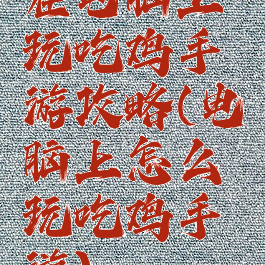 在电脑上
玩吃鸡手
游攻略(电
脑上怎么
玩吃鸡手
游)